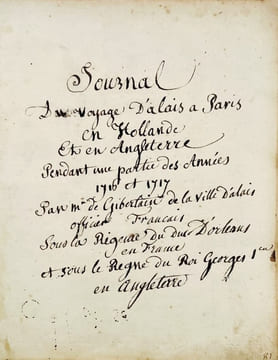 Journal
Du voyage D'alais a Paris
en Hollande
Et en Angleterre
Pendant une partie des Années
1716 et 1717
Par mr de Gibertain de la ville D'alais
officier Francais
Sous la Régence du duc D'orleans
en France
et sous le Regne du Roi Georges 1er
en Angleterre